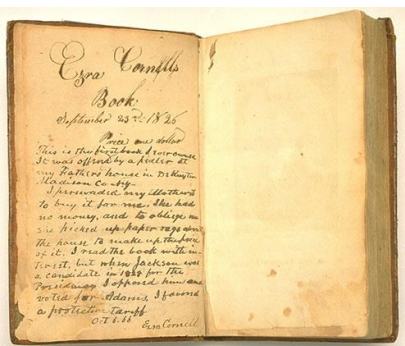 Ezra Cornell's
Book
September 23rd. 1826
Price one dollar
This is the first book I ever owned
It was offered by a pedler at
my Father's house in DeRuyter
Madison County.
I persuaded my Mother
to buy it for me. She had
no money, and to oblige me
she picked up paper rags about
the house to make up the price
of it. I read the book with in-
terest, but when Jackson was
a candidate in 1828 for the
Presidency I opposed him and
voted for Adams, I favored
a protective tariff
Ezra Cornell